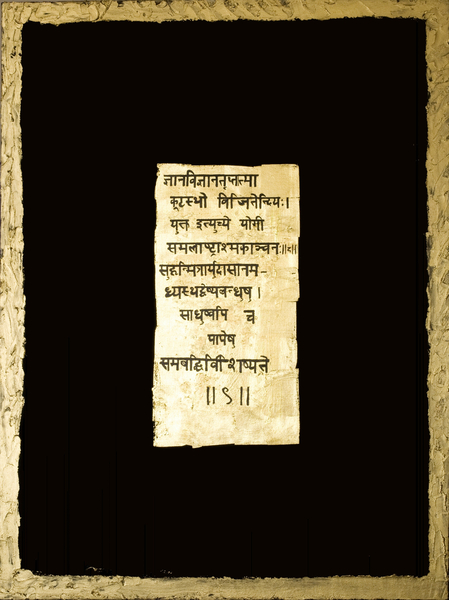 ज्ञानविज्ञानतृप्तत्मा
कूटस्थो विजितेन्द्रियः।
युक्त इत्युच्ये योगी
समलाष्ट्राश्मकाञ्चनः॥८॥
सुहृन्मित्रार्युदासानम-
ध्यस्थद्वेष्यबन्धुष।
साधुष्वपि च
पापेष
समबद्विर्विशिष्यते
॥९॥